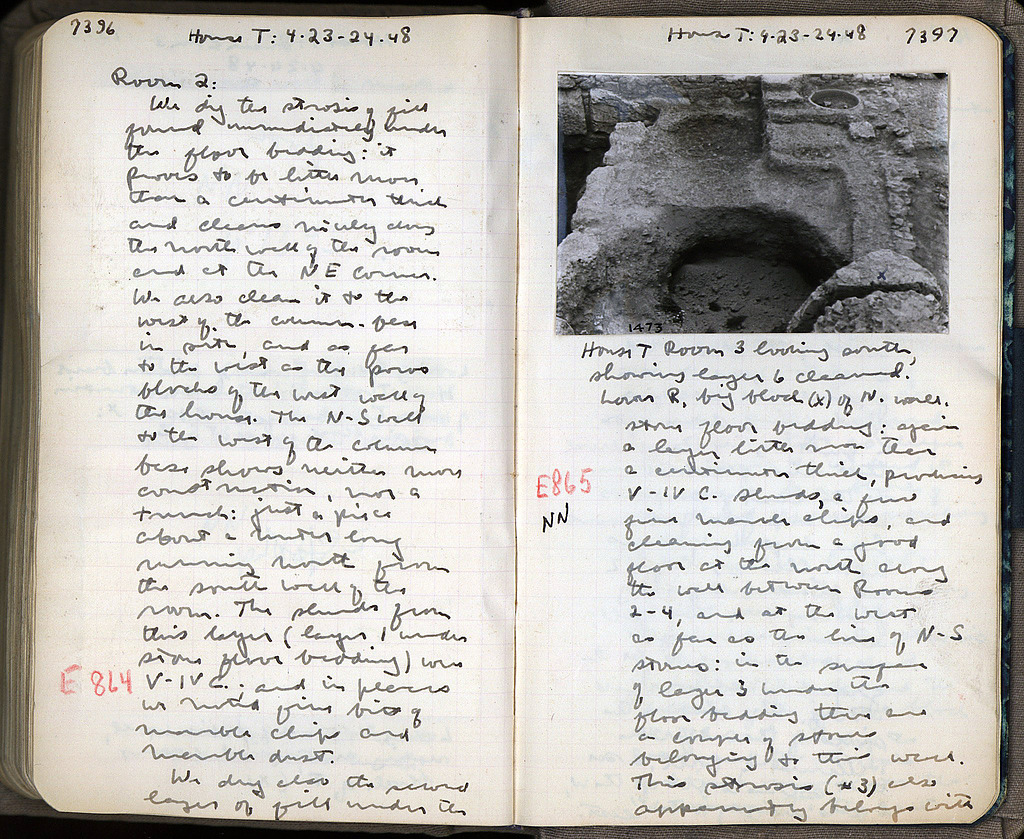 7396
House T: 4-23-24-48
Room 2:
We dig the strosis of fill
found immediately under
the floor bedding: it
proves to be little more
than a centimeter thick
and cleans nicely along
the north wall of the room
and at the NE corner.
We also clean it to the
west of the column-base
in situ, and as far
to the west as the poros
blocks of the west wall of
the house. The N-S wall
to the west of the column
base shows neither more
construction, nor a
trench: just a piece
about a meter long
running north from
the south wall of the
room. The sherds from
this layer (layer 1 under
stone floor bedding) were
E 864
V-IV C.; and in places
we noted fine bits of
marble chips and
marble dust.
We dug also the second
layer of fill under the
House T: 4-23-24-48
7397
1473
x
House T Room 3 looking south,
showing layer 6 cleaned.
Lower R, big block (x) of N. wall.
stone floor bedding: again
a layer little more than
a centimeter thick, producing
E865
V-IV C. sherds, a few
NN
fine marble chips, and
cleaning from a good
floor at the north along
the wall between Rooms
2-4, and at the west
as far as the line of N-S
stones: in the surface
of layer 3 under the
floor bedding there are
a couple of stones
belonging to this wall.
This strosis (#3) also
apparently belongs with